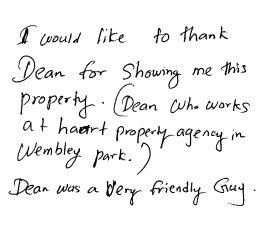 I would like to thank
Dean for Showing me this
property. (Dean who works
at haart property agency in
Wembley park.)
Dean was a very friendly Guy.